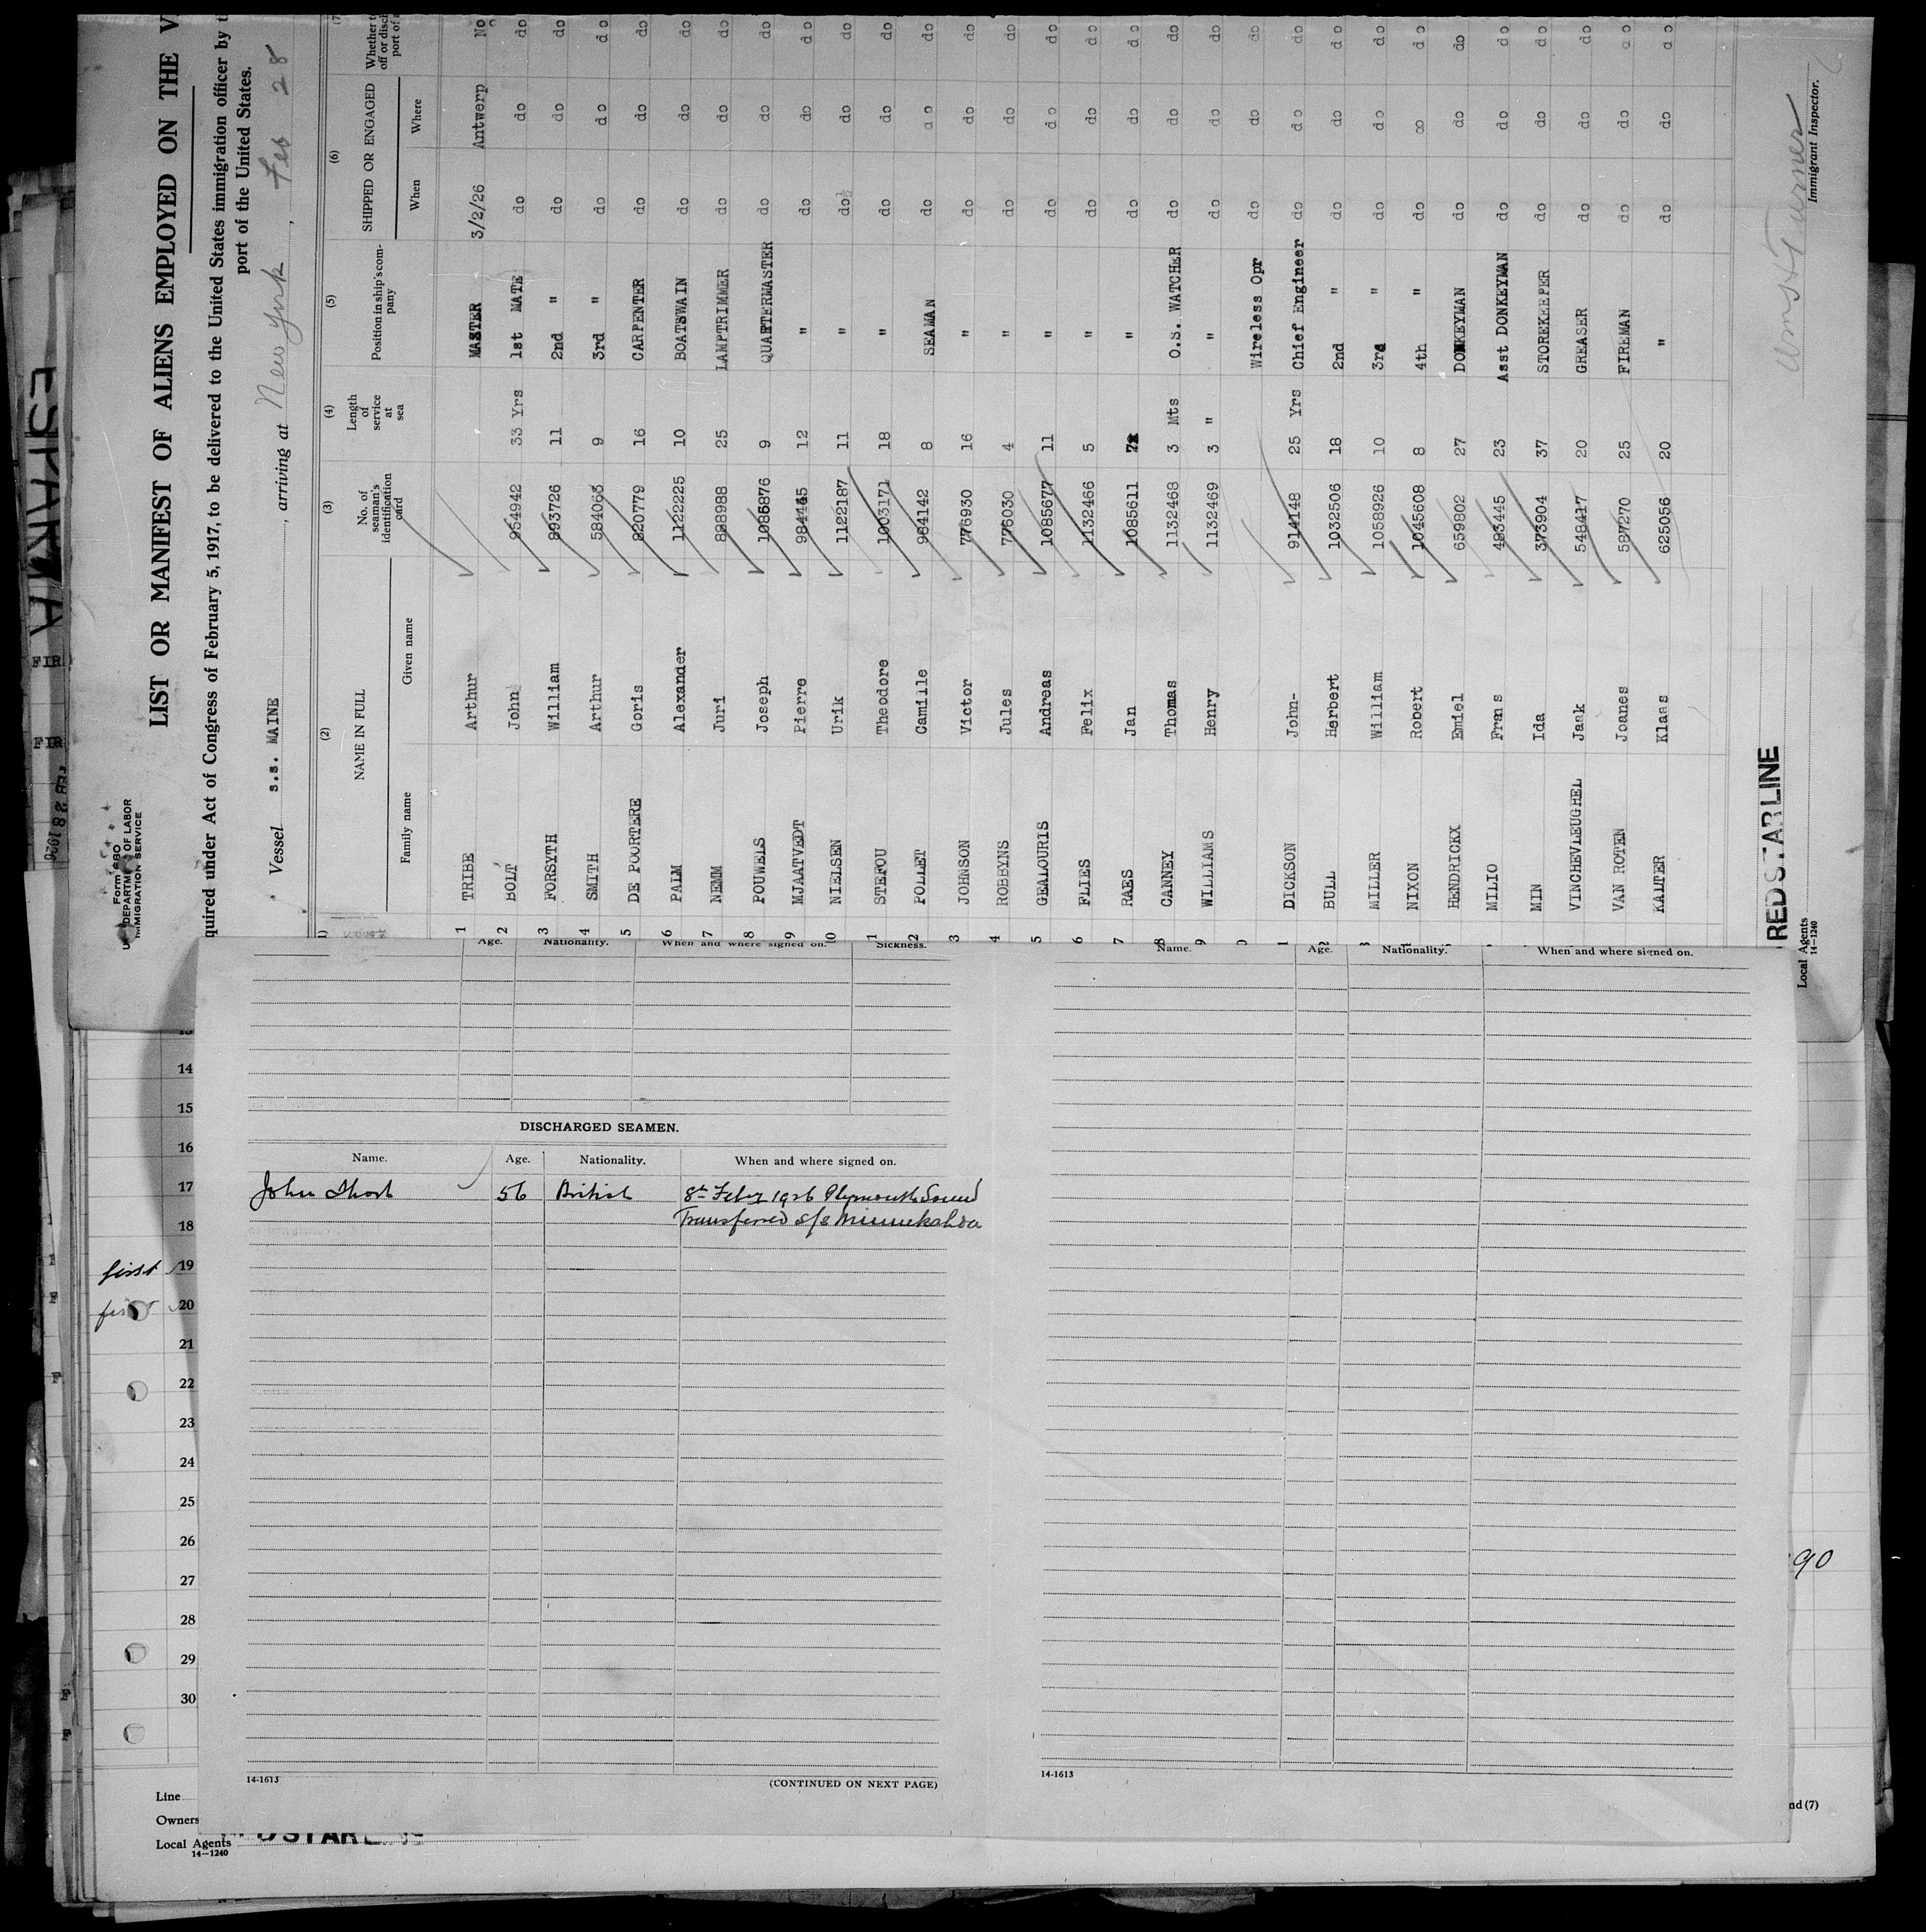 Form 680
U. S. DEPARTMENT OF LABOR
IMMIGRATION SERVICE
LIST OR MANIFEST OF ALIENS EMPLOYED ON THE V
quired under Act of Congress of February 5, 1917, to be delivered to the United States immigration officer by t
port of the United States.
Vessel s.s. MAINE, arriving at New York, Feb 28
(2) (3) (4) (5) (6) (7
NAME IN FULL No. of seaman's identification card Length of service at sea Position in ship's company SHIPPED OR ENGAGED Whether t off or disch port of a
Family name Given name When Where
1 TRIBE Arthur MASTER 3/2/26 Antwerp No
2 BOLT John 954942 33 Yrs 1st MATE do do do
3 FORSYTH William 893726 11 2nd " do do do
4 SMITH Arthur 584063 9 3rd " do do do
5 DE POORTERE Goris 820779 16 CARPENTER do do do
6 PALM Alexander 1122225 10 BOATSWAIN do do do
7 NEMM Juri 828988 25 LAMPTRIMMER do do do
8 POUWELS Joseph 1085876 9 QUARTERMASTER do do do
9 MJAATVEDT Pierre 984445 12 " do do do
10 NIELSEN Urik 1122187 11 " do do do
1 STEFOU Theodore 1003171 18 " do do do
2 POLLET Camille 964142 8 SEAMAN do do do
3 JOHNSON Victor 776930 16 " do do do
4 ROBBYNS Jules 776030 4 " do do do
5 GEALOURIS Andreas 1085677 11 " do do do
6 FLIES Felix 1132466 5 " do do do
7 RAES Jan 1085611 " do do do
8 CANNEY Thomas 1132468 3 Mts O.S. WATCHER do do do
9 WILLIAMS Henry 1132469 3 " " do do do
0 Wireless Opr do do do
1 DICKSON John- 914148 25 Yrs Chief Engineer do do do
2 BULL Herbert 1032506 18 2nd " do do do
3 MILLER William 1058926 10 3rd " do do do
NIXON Robert 1045608 8 4th " do do do
HENDRICKX Emiel 659802 27 DONKEYMAN do do do
MILIO Frans 493445 23 Asst DONKEYMAN do do do
MIN Ida 373904 37 STOREKEEPER do do do
VINCHEVLEUGHEL Jaak 548417 20 GREASER do do do
VAN ROTEN Joanes 587270 25 FIREMAN do do do
KALTER Klaas 625056 20 " do do do
RED STAR LINE
Local Agents
14-1240
Immigrant Inspector.
Age. Nationality. When and where signed on. Sickness.
Name. Age. Nationality. When and where signed on.
DISCHARGED SEAMEN.
Name. Age. Nationality. When and where signed on.
John Short 56 British 8th Feby 1926 Plymouth Sound
Transferred s/s Minnekahda
14-1613 (CONTINUED ON NEXT PAGE)
14-1613
14
15
16
17
18
first 19
first 20
21
22
23
24
25
26
27
28
29
30
90
Line
Owners
Local Agents
14-1240
nd (7)